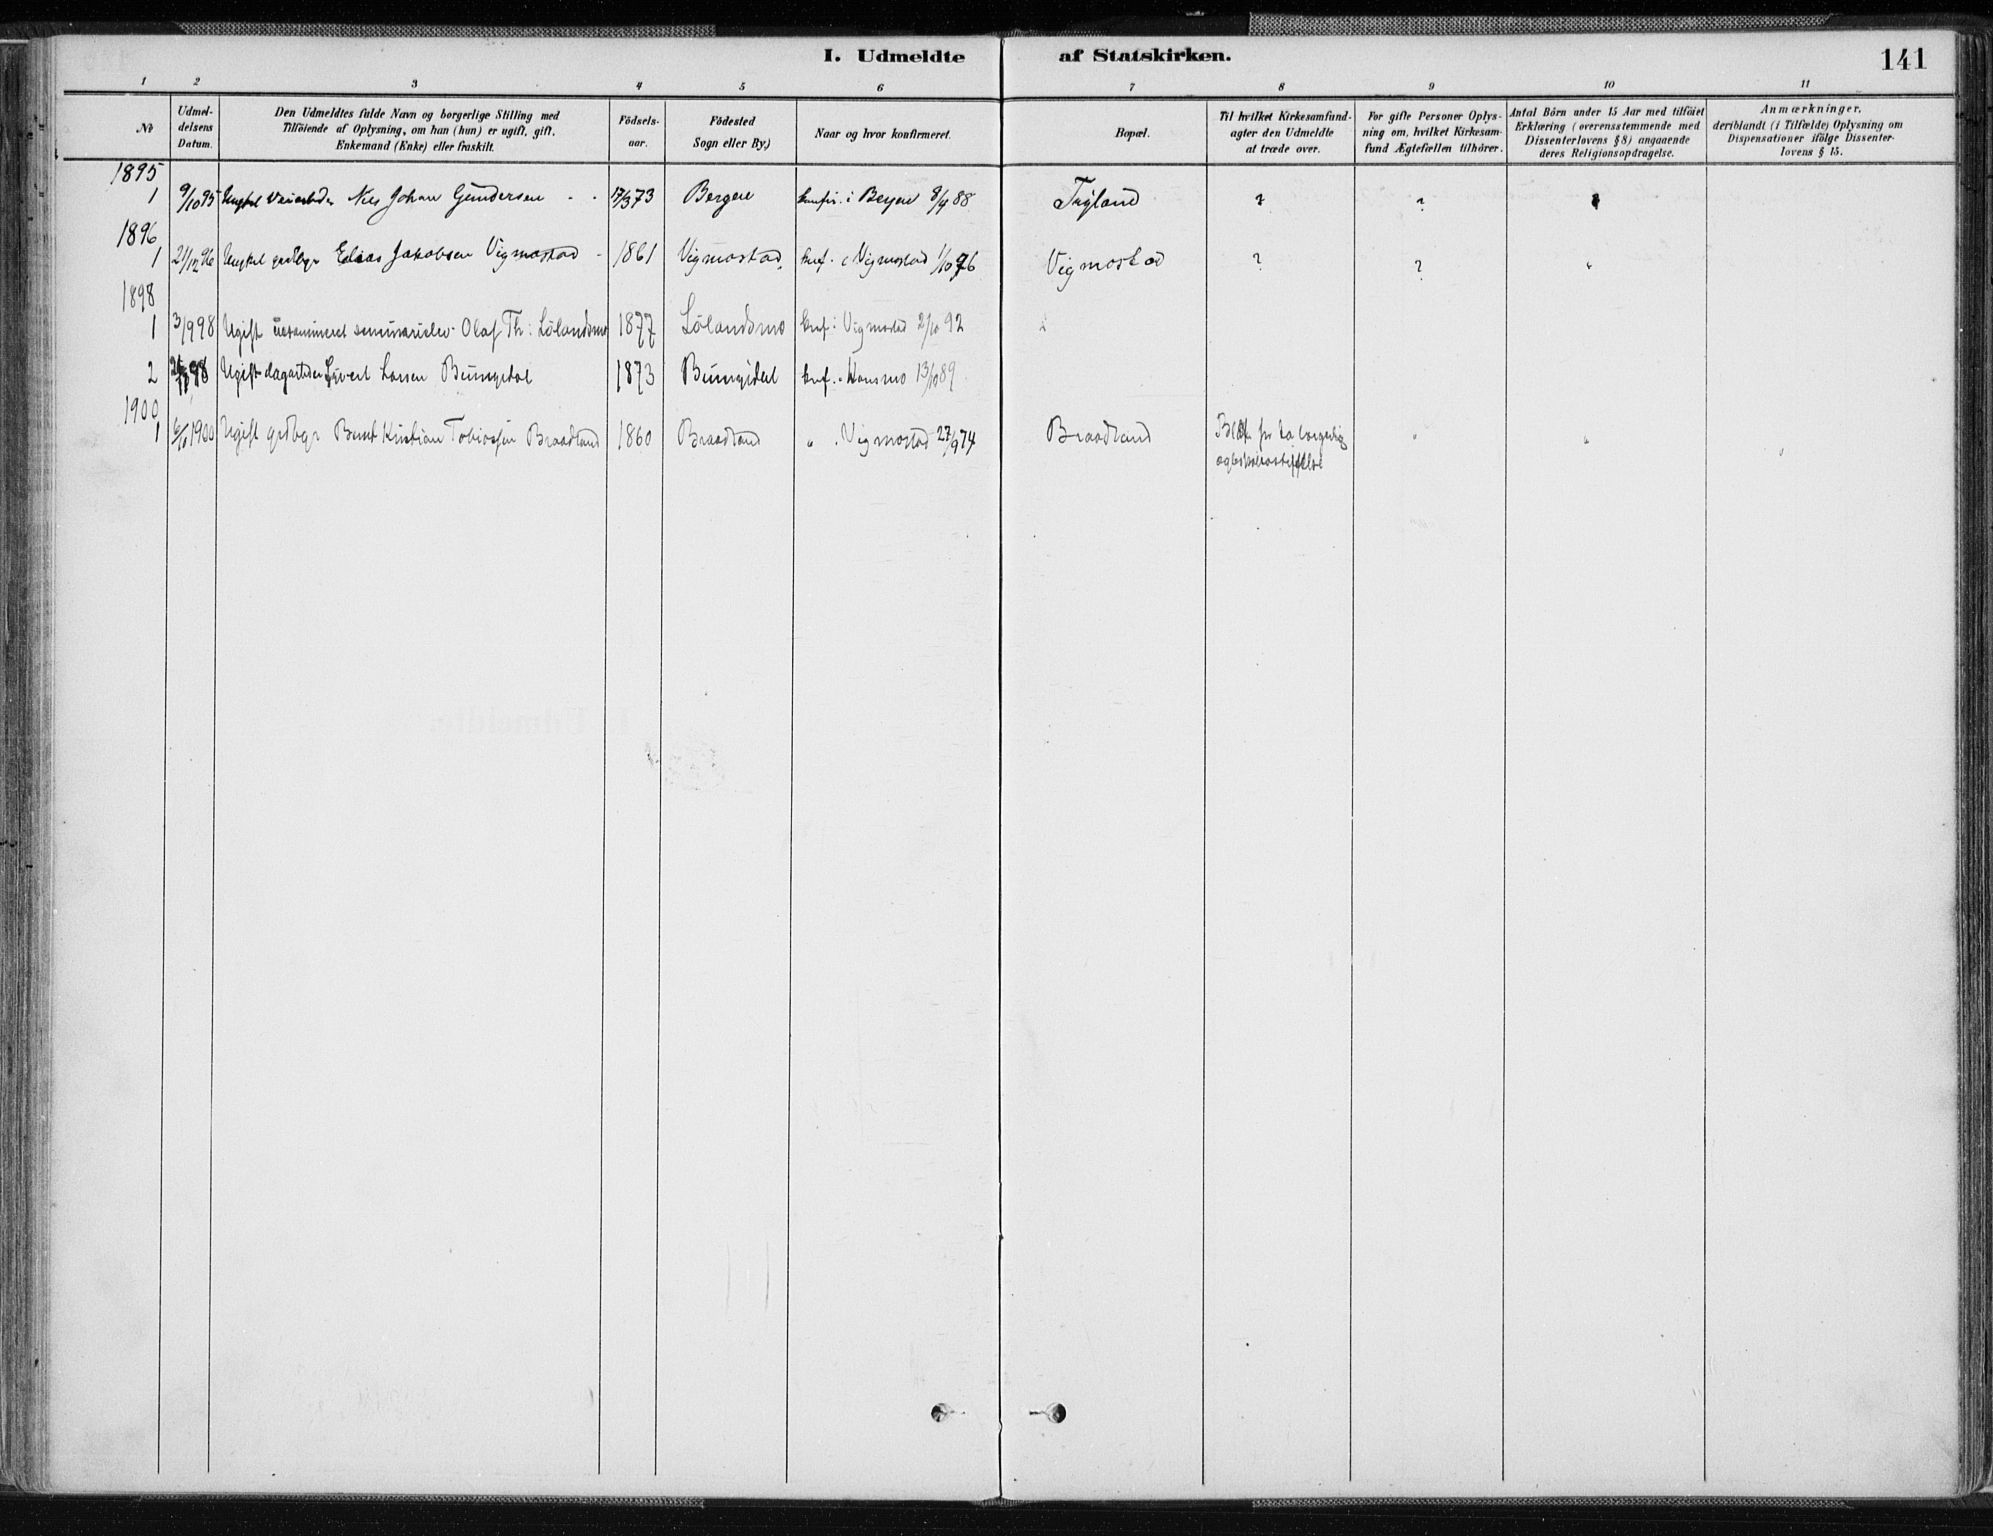 I. Udmeldte af Statskirken. 141
1 2 3 4 5 6 7 8 9 10 11
№ | Udmel-delsens Datum. | Den Udmeldtes fulde Navn og borgerlige Stilling med Tilföiende af Oplysning, om han (hun) er ugift, gift, Enkemand (Enke) eller fraskilt. | Födsels-aar. | Födested Sogn eller By.) | Naar og hvor konfirmeret. | Bopæl. | Til hvilket Kirkesamfund agter den Udmeldte at træde over. | For gifte Personer Oplys-ning om, hvilket Kirkesam-fund Ægtefællen tilhörer. | Antal Börn under 15 Aar med tilföiet Erklæring (overensstemmende med Dissenterlovens § 8) angaaende deres Religionsopdragelse. | Anmærkninger, deriblandt (i Tilfælde) Oplysning om Dispensationer ifölge Dissenter-lovens § 15.
1895
1 9/10 95 Nils Johan Gundersen 17/3 73 Bergen konfir. i Bergen 8/4 88 Tagland ? ?
1896
1 21/12 96 Elias Jakobsen Vigmostad 1861 Vigmostad konf. i Vigmostad 1/10 76 Vigmostad ? ? "
1898
1 3/9 98 Ugift seminarielev Olaf Th: Lölandsmo 1877 Lölandsmo konf. i Vigmostad 2/10 92
2 98 Ugift Sivert Larsen 1873 konf. i Konsmo 13/10 89
1900
1 1900 Ugift grdbgr Bernt Kristian Tobiassen Braadland 1860 Braadland " Vigmostad 27/9 74 Braadland for borgerlig " " "